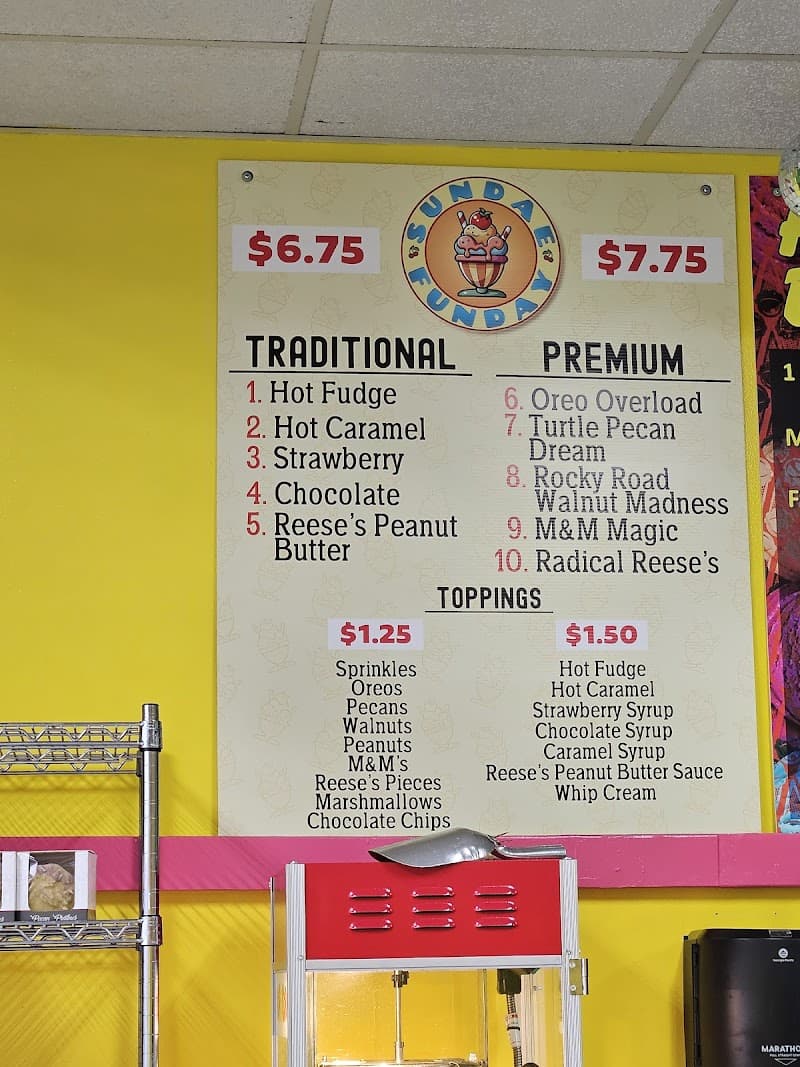 SUNDAE
FUNDAY
$6.75
$7.75
TRADITIONAL
1. Hot Fudge
2. Hot Caramel
3. Strawberry
4. Chocolate
5. Reese's Peanut
Butter
PREMIUM
6. Oreo Overload
7. Turtle Pecan
Dream
8. Rocky Road
Walnut Madness
9. M&M Magic
10. Radical Reese's
TOPPINGS
$1.25
Sprinkles
Oreos
Pecans
Walnuts
Peanuts
M&M's
Reese's Pieces
Marshmallows
Chocolate Chips
$1.50
Hot Fudge
Hot Caramel
Strawberry Syrup
Chocolate Syrup
Caramel Syrup
Reese's Peanut Butter Sauce
Whip Cream
1
M
F
MARATHO